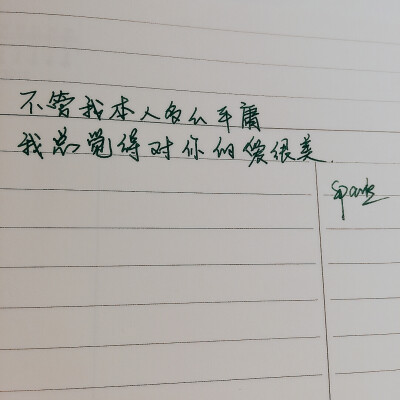 不管我本人多么平庸
我总觉得对你的爱很美.